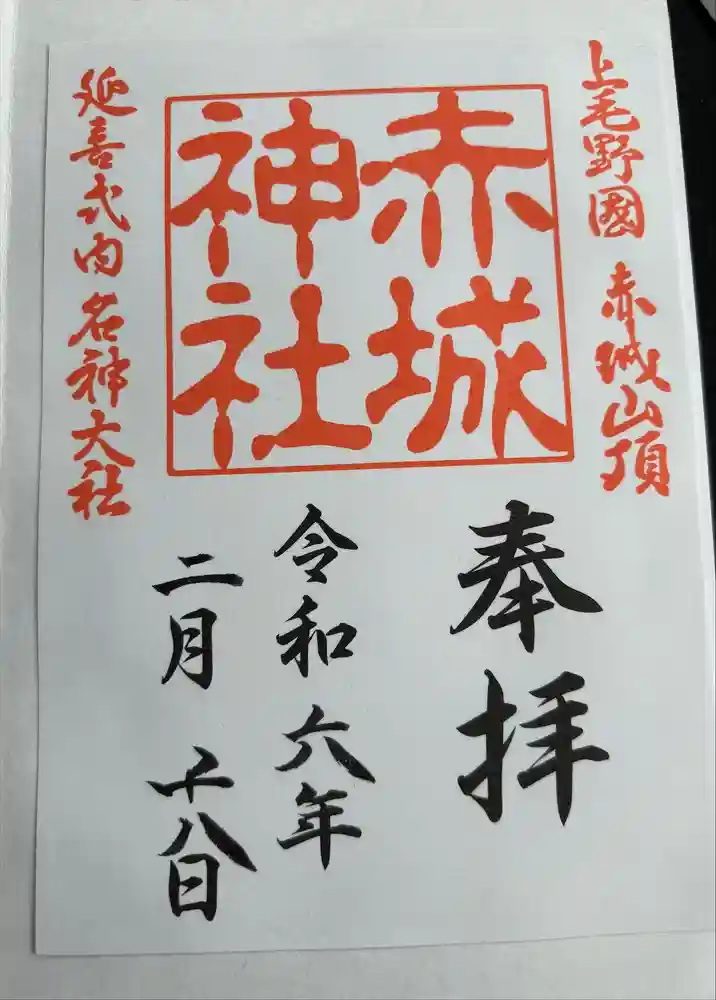 上毛野國 赤城山頂
赤城
神社
延喜式内名神大社
奉拝
令和六年
二月 十八日